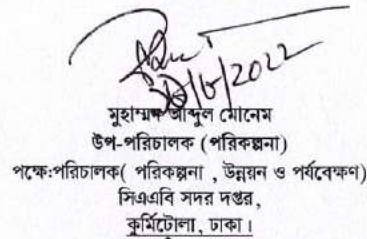 28/6/2022
মুহাম্মদ আব্দুল মোনেম
উপ-পরিচালক (পরিকল্পনা)
পক্ষে:পরিচালক( পরিকল্পনা , উন্নয়ন ও পর্যবেক্ষণ)
সিএএবি সদর দপ্তর,
কুর্মিটোলা, ঢাকা।